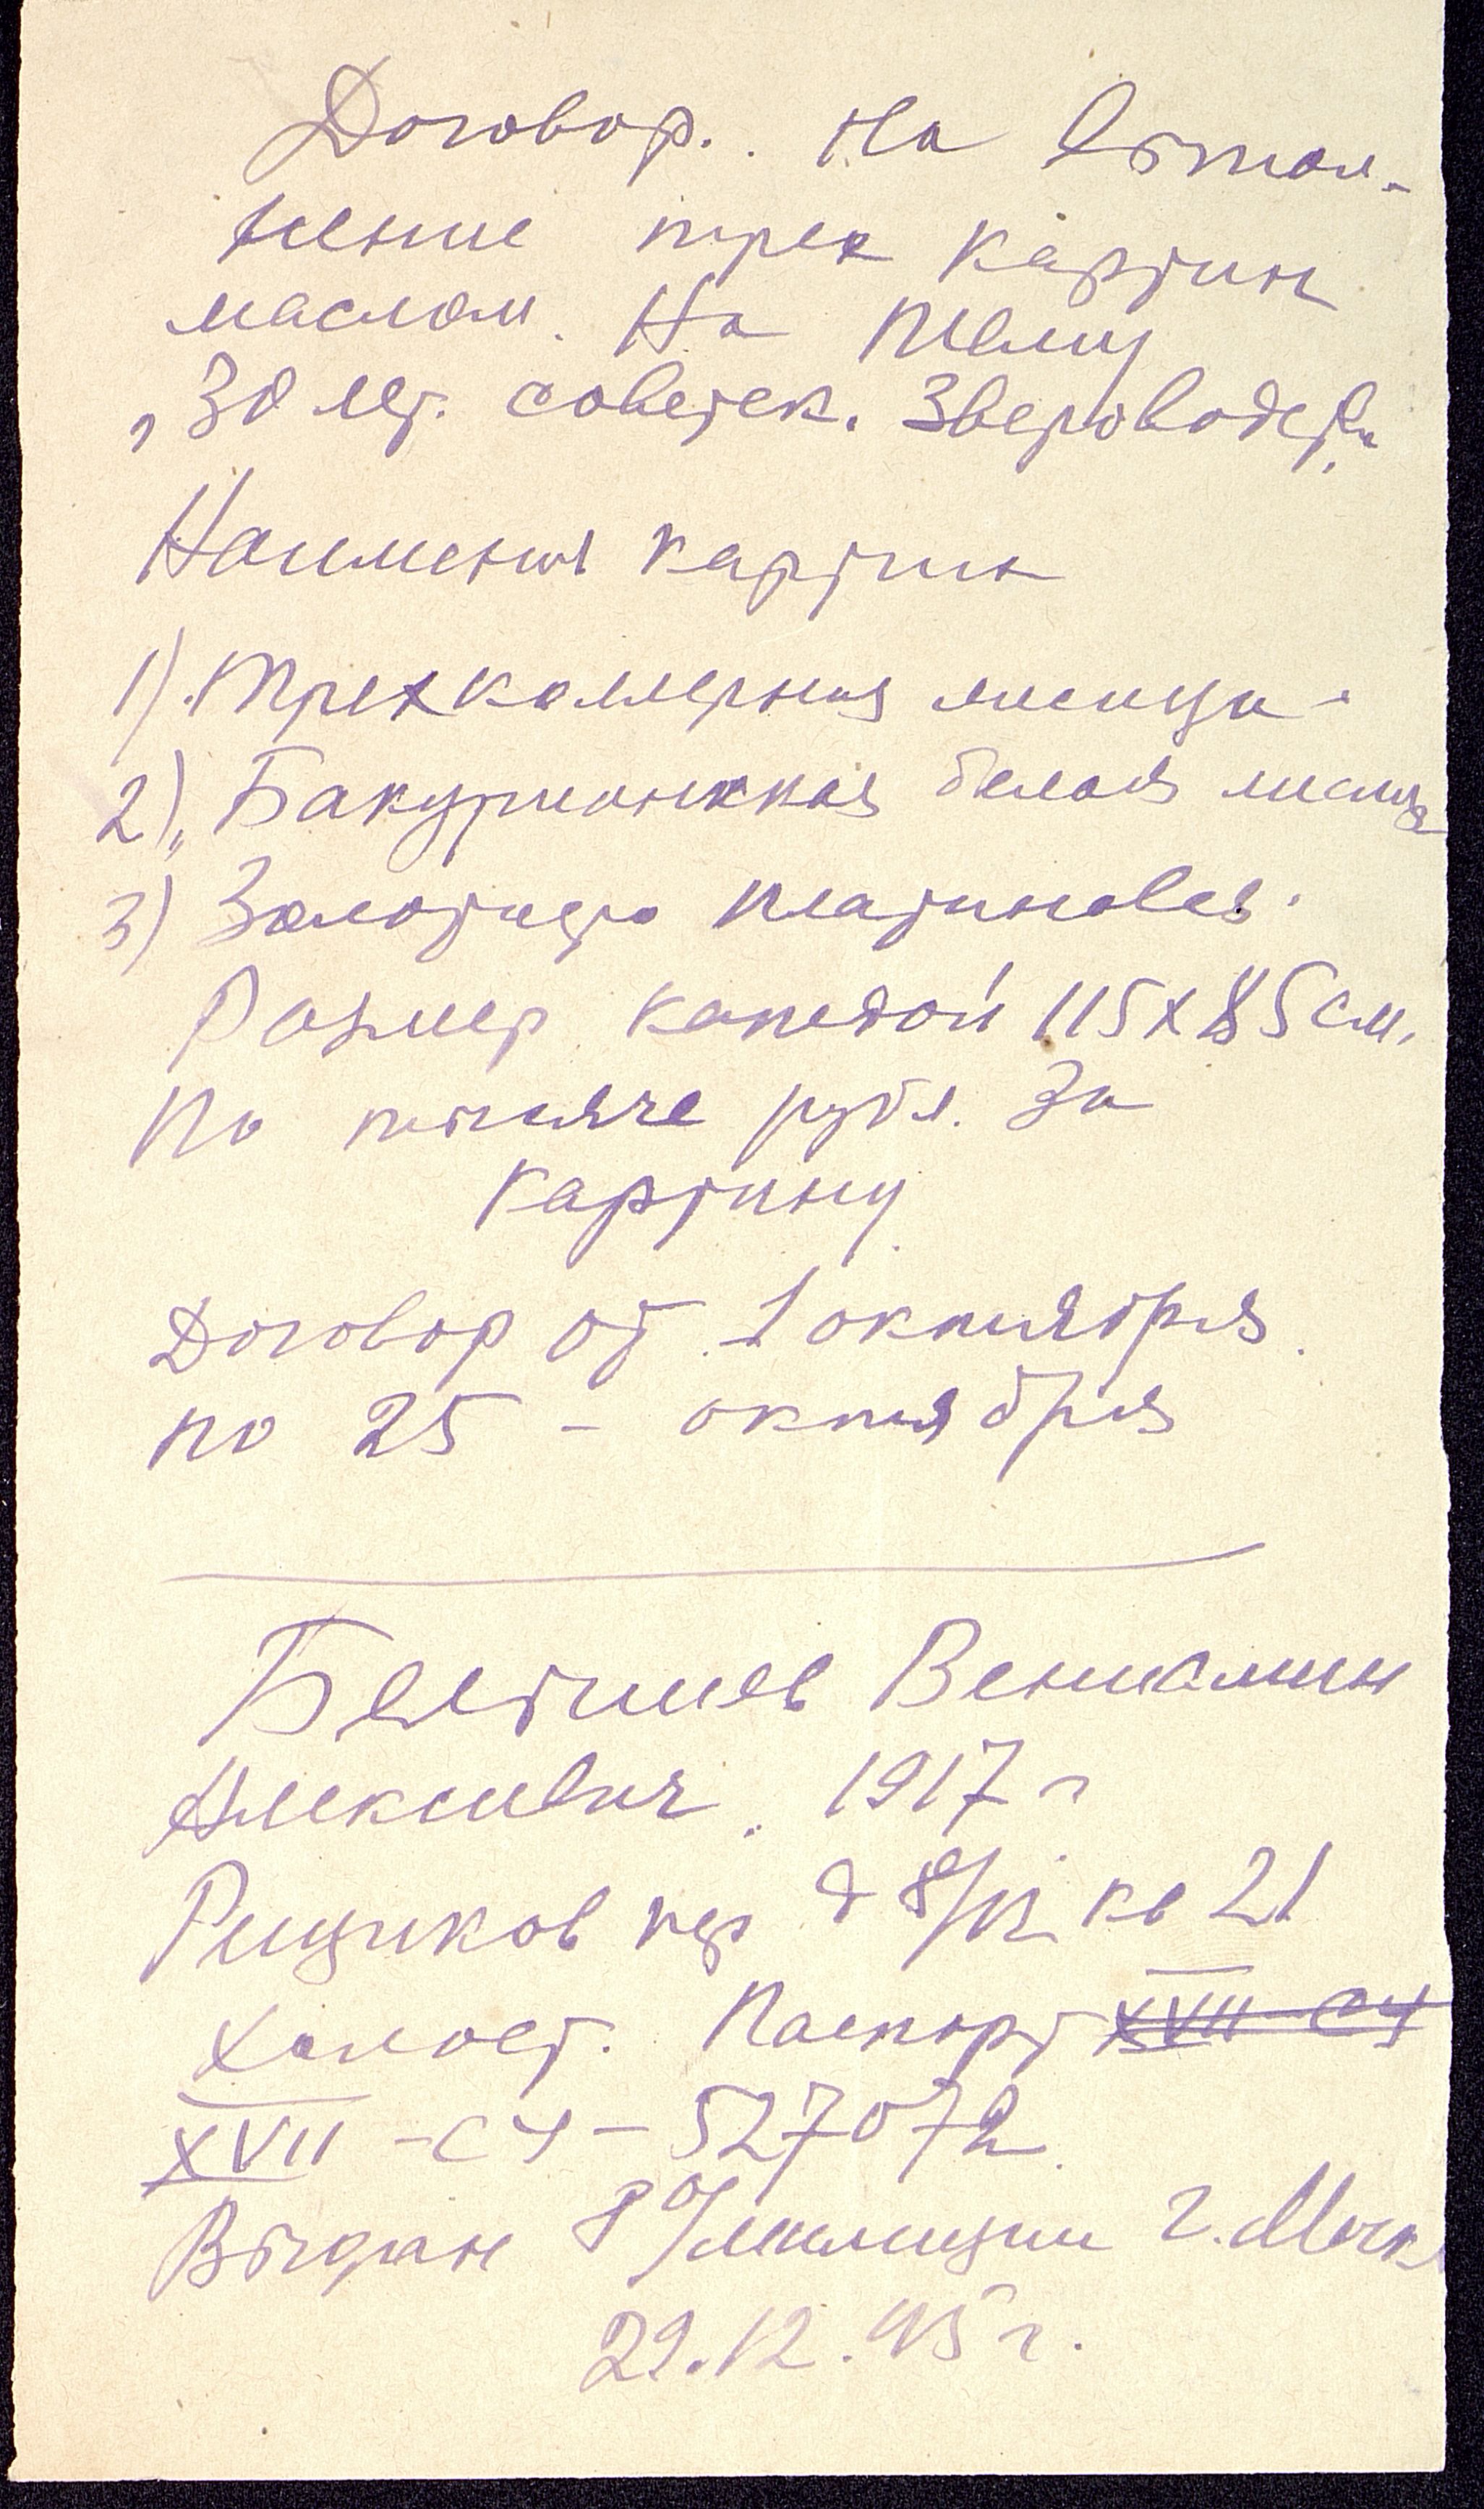 Договор. На выпол-
нение трех картин
маслом. На тему
"30 лет. советск. Звероводств.
Наименья картин
1). Трехкамерная лисица.
2), Бакурианская белая лисица
3) Залотисто платиновая.
Размер каждой 115х85 см.
По тысяче рубл. за
картину
Договор от 1 октября.
по 25 - октября
Вениамин
Алексеевич. 1917 г
Рещиков пер д 8/12 кв 21
Холост. Паспорт XVII СЧ
XVII - СЧ - 527072.
Выдан 8 о/милиции г. Моск
29.12.45 г.